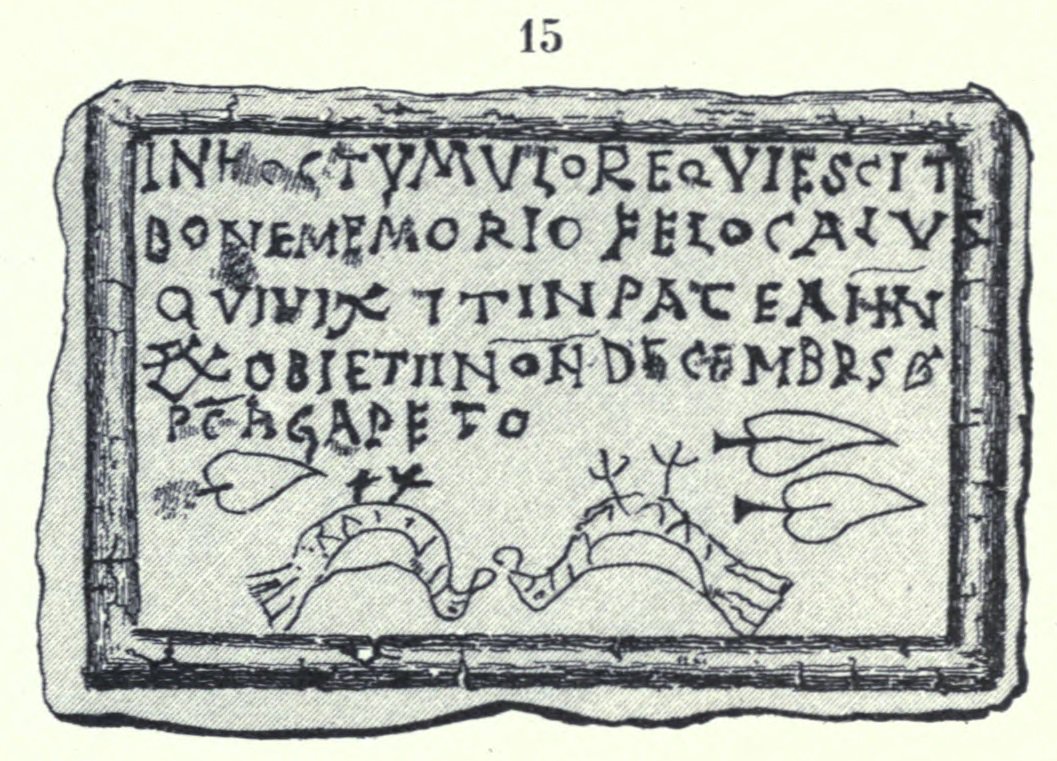 15
IN HOC TVMVLO REQVIESCIT
BONE MEMORIO FELOCALVS
QVI VIXIT IN PACE ANN
OBIET II NON DECEMBRS
PC AGAPETO